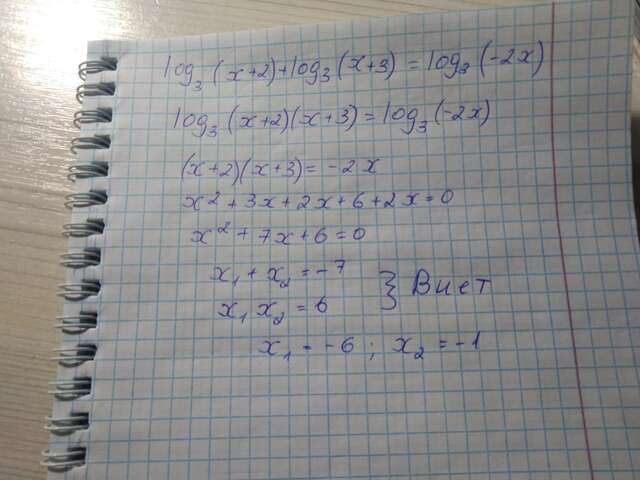 log₃(x+2)+log₃(x+3)=log₃(-2x)
log₃(x+2)(x+3)=log₃(-2x)
(x+2)(x+3)=-2x
x²+3x+2x+6+2x=0
x²+7x+6=0
x₁+x₂=-7
x₁x₂=6 } Виет
x₁=-6; x₂=-1